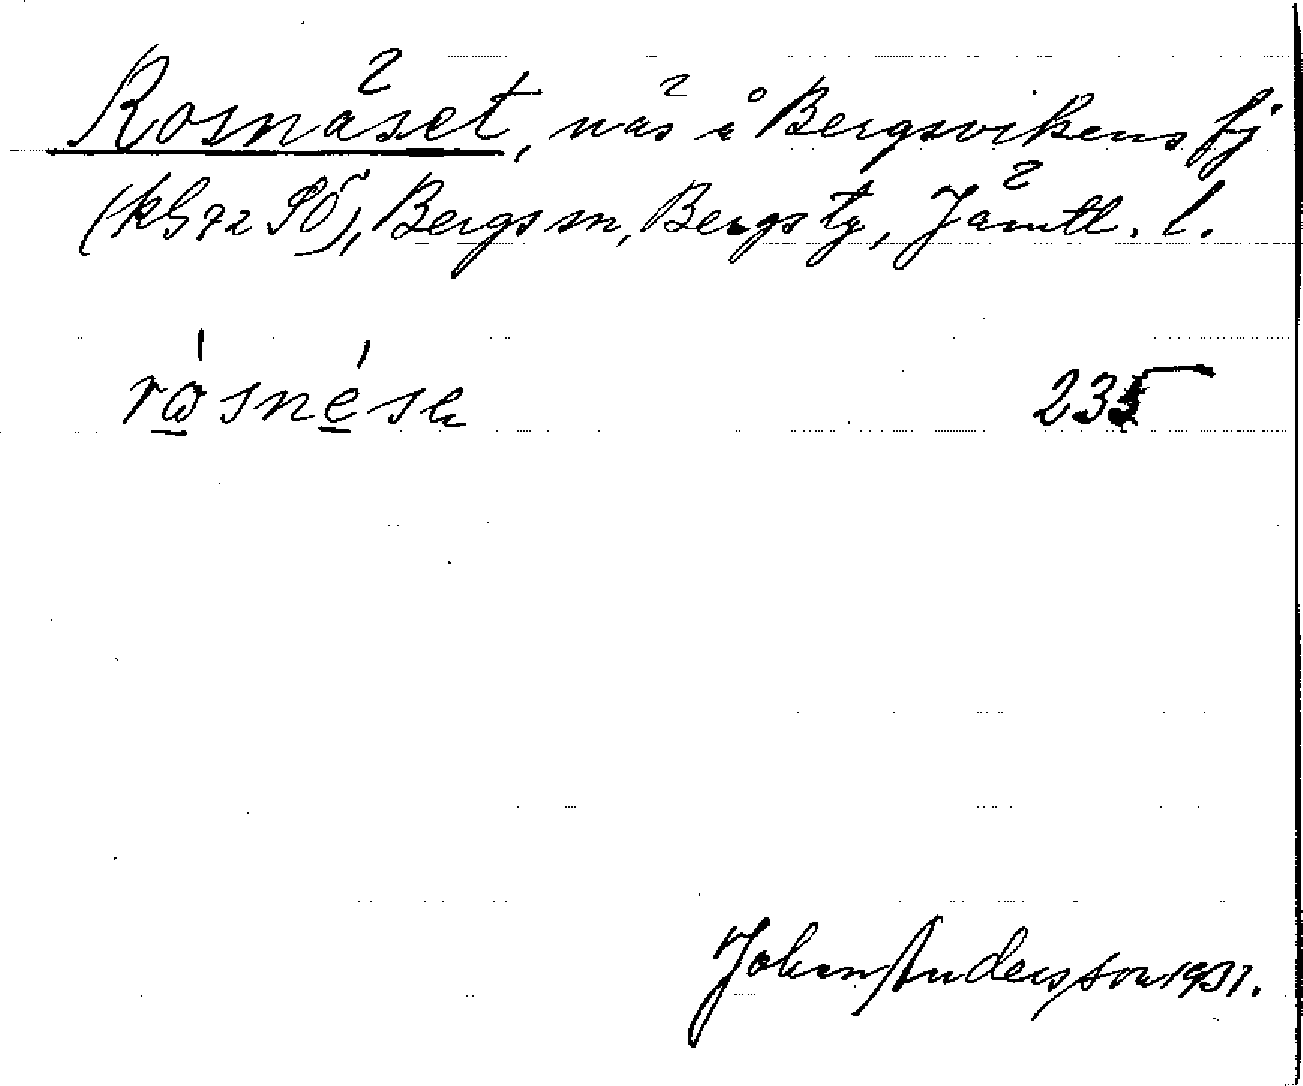 Rosnäset, näs å Bergsvikens fj
(kb 72 SÖ), Bergs sn, Bergs tg, Jämtl. l.
råsnése 235
Johan Andersson 1931.